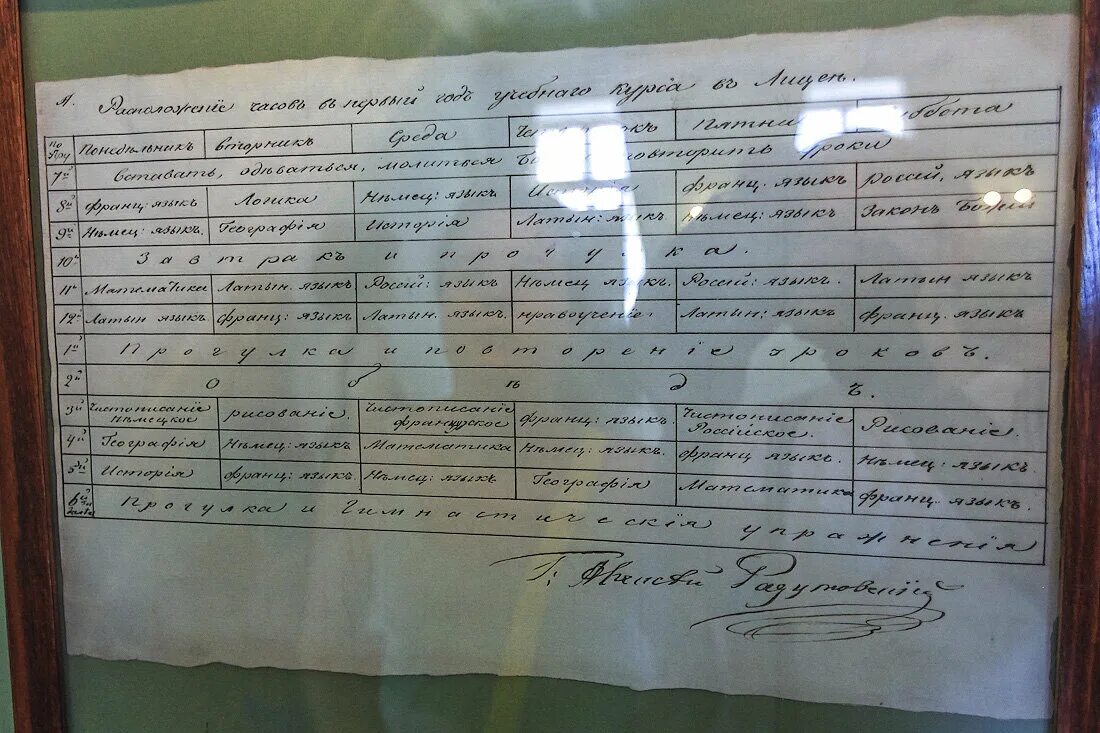 А. Расположеніе часовъ въ первый годъ учебнаго курса въ Лицеѣ.
По Понедѣльникъ вторникъ Среда Пятни
7й вставать, одѣваться, молиться повторить уроки
8й франц: языкъ Логика Нѣмец: языкъ франц: языкъ россій, языкъ
9й Нѣмец: языкъ. Географія Исторія Латын: языкъ Нѣмец: языкъ Законъ Божій
10й Завтракъ и прогулка.
11й Математика Латын. языкъ Россій: языкъ Нѣмец языкъ. Россій: языкъ. Латын языкъ
12й Латын языкъ. франц: языкъ Латын. языкъ. нравоученіе. Латин: языкъ франц. языкъ
1й Прогулка и повтореніе уроковъ.
2й Обѣдъ.
3й Чистописаніе Нѣмецкое рисованіе. Чистописаніе французское франц: языкъ Чистописаніе Россійское. Рисованіе.
4й Географія Нѣмец: языкъ Математика Нѣмец: языкъ. франц языкъ. Нѣмец: языкъ
5й Исторія франц: языкъ. Нѣмец: языкъ Географія Математика франц. языкъ.
6й Прогулка и Гимнастическія упражненія